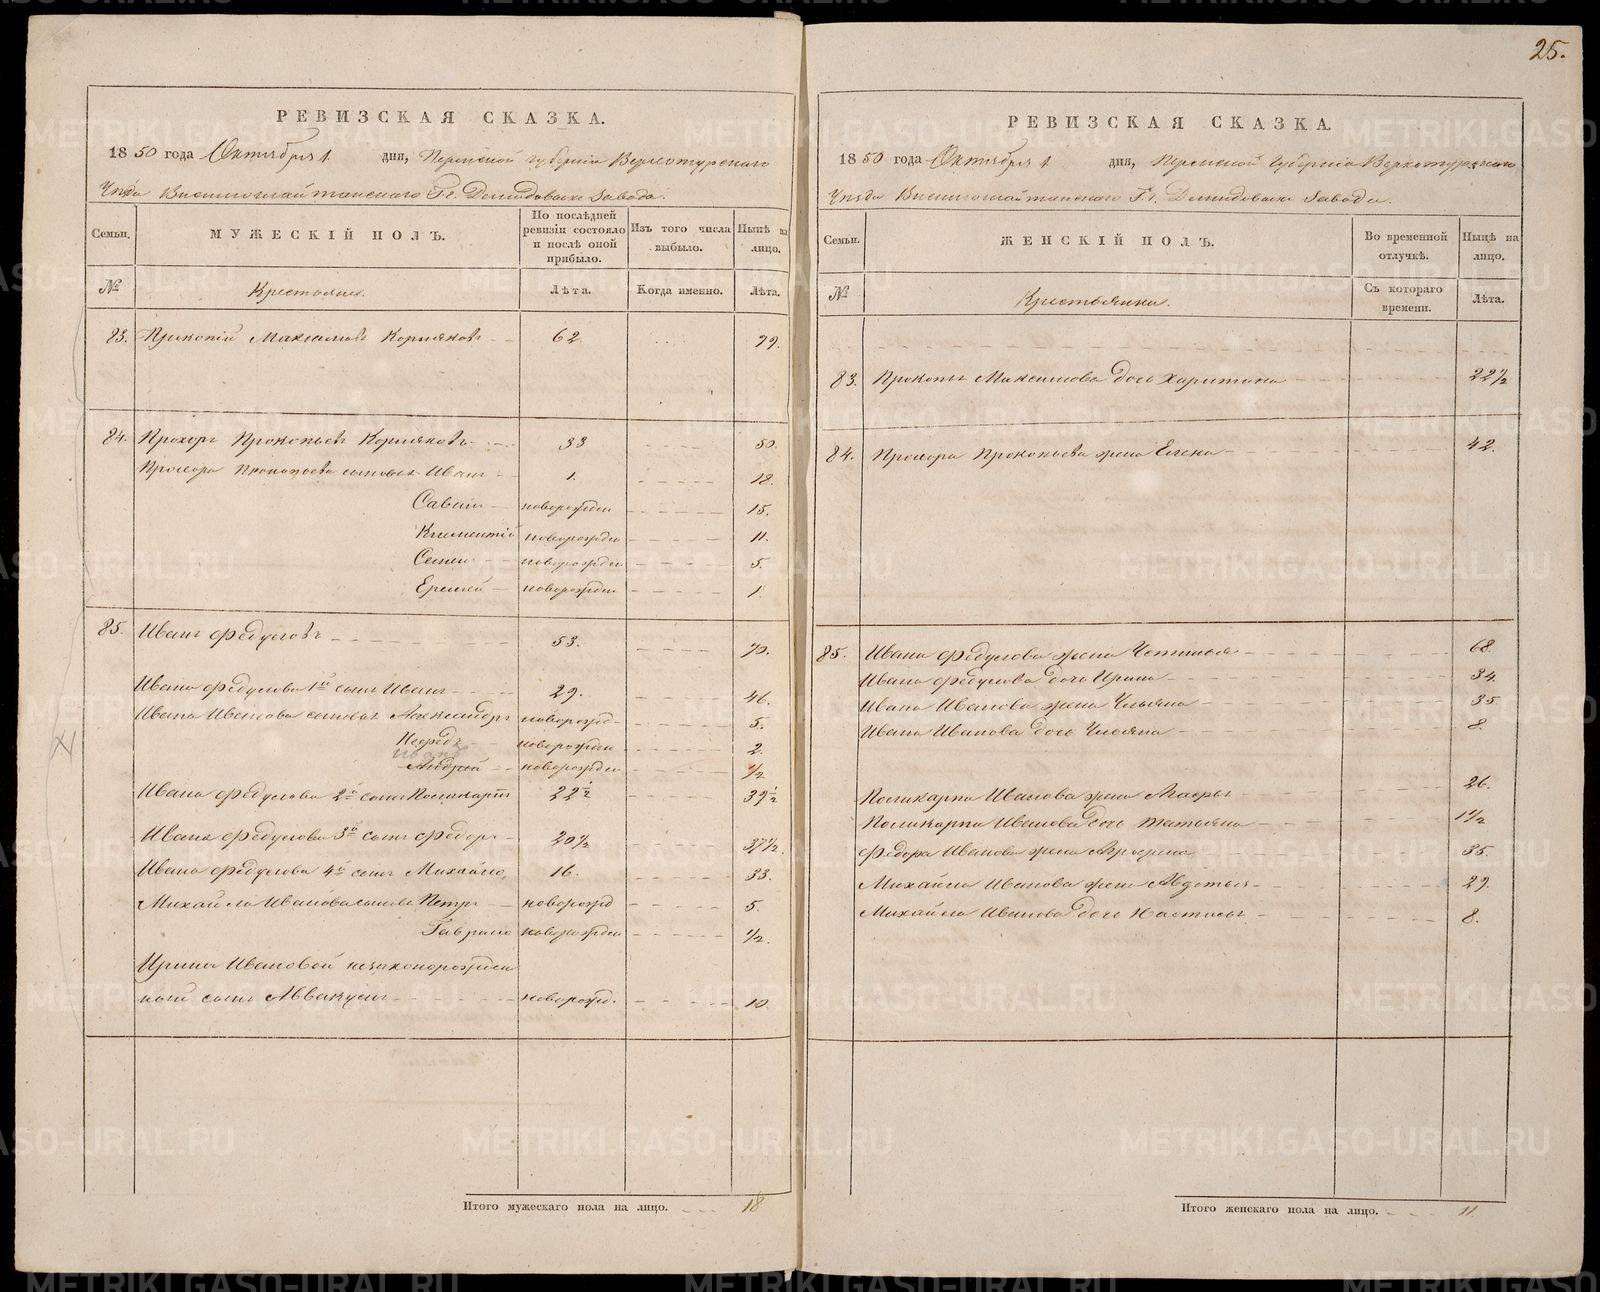 25.
РЕВИЗСКАЯ СКАЗКА.
1850 года Октября 1. дня, Пермской губерніи Верхотурскаго
Уѣзда Висимошайтанскаго Гг. Демидовыхъ Завода.
Семьи. МУЖЕСКІЙ ПОЛЪ. По послѣдней ревизіи состояло и послѣ оной прибыло. Изъ того числа выбыло. Нынѣ на лицо.
№ Крестьяне. Лѣта. Когда именно. Лѣта.
83. Прокопій Максимовъ Корняковъ 62. 79.
84. Прохоръ Прокопьевъ Корняковъ 33 50.
Прохора Прокопьева сыновья Иванъ 1. 18.
Савинъ новорожден 15.
Климентій новорожден 11.
Семенъ новорожден 5.
Еремей новорожден 1
85. Иванъ Федуловъ 53. 70.
Ивана Федулова 1й сынъ Иванъ 29. 46.
Ивана Иванова сыновья Александръ новорожд 5.
Нефедъ новорожден 2.
Иванъ
Андрей новорожден 1/2
Ивана Федулова 2й сынъ Поликарпъ 22 1/2 39 1/2
Ивана Федулова 3й сынъ Федоръ 20 1/2 37 1/2.
Ивана Федулова 4й сынъ Михайло 16. 33.
Михайла Иванова сыновья Петръ новорожд 5.
Гаврило новорожден 1/2.
Ирины Ивановой незаконорожден
ный сынъ Аввакумъ новорожд. 10.
Итого мужескаго пола на лицо. 18
РЕВИЗСКАЯ СКАЗКА.
1850 года Октября 1. дня, Пермской Губерніи Верхотурскаго
Уѣзда Висимошайтанскаго Гг. Демидовыхъ Завода.
Семьи. ЖЕНСКІЙ ПОЛЪ. Во временной отлучкѣ. Нынѣ на лицо.
№ Крестьянки. Съ котораго времени. Лѣта.
83. Прокопья Максимова дочь Харитина 22 1/2
84. Прохора Прокопьева жена Елена 42.
85. Ивана Федулова жена Устинья 68
Ивана Федулова дочь Ирина 34.
Ивана Иванова жена Ульяна 35
Ивана Иванова дочь Ульяна 8.
Поликарпа Иванова жена 26.
Поликарпа Иванова дочь Татьяна 1 1/2
Федора Иванова жена 35.
Михайла Иванова жена Авдотья 29.
Михайла Иванова дочь Настасья 8.
Итого женскаго пола на лицо. 11
METRIKI.GASO-URAL.RU